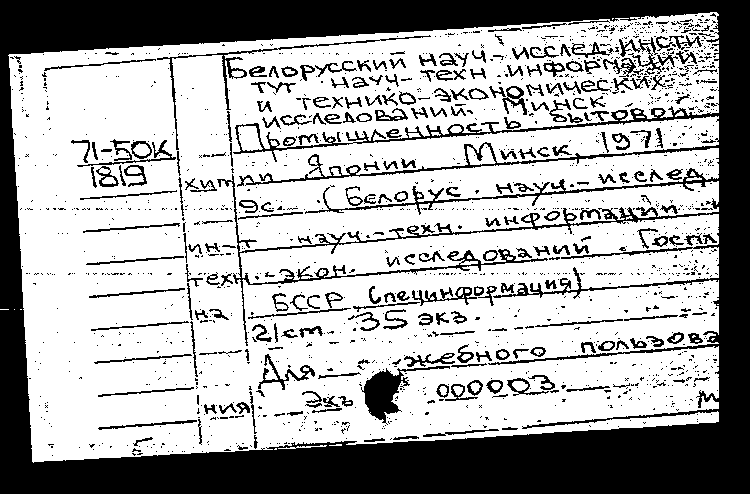 Белорусский науч.-исслед. инсти
тут науч-техн. информации
и технико-экономических
исследований. Минск
Промышленность бытовой
71-50К
1819
химии Японии. Минск, 1971.
9с. (Белорус. науч.-исслед.
ин-т науч.-техн. информации и
техн.-экон. исследований. Госпла
на БССР. Специнформация).
21 ст. 35 экз.
Для жебного пользова
ния. Экз 000003.
М